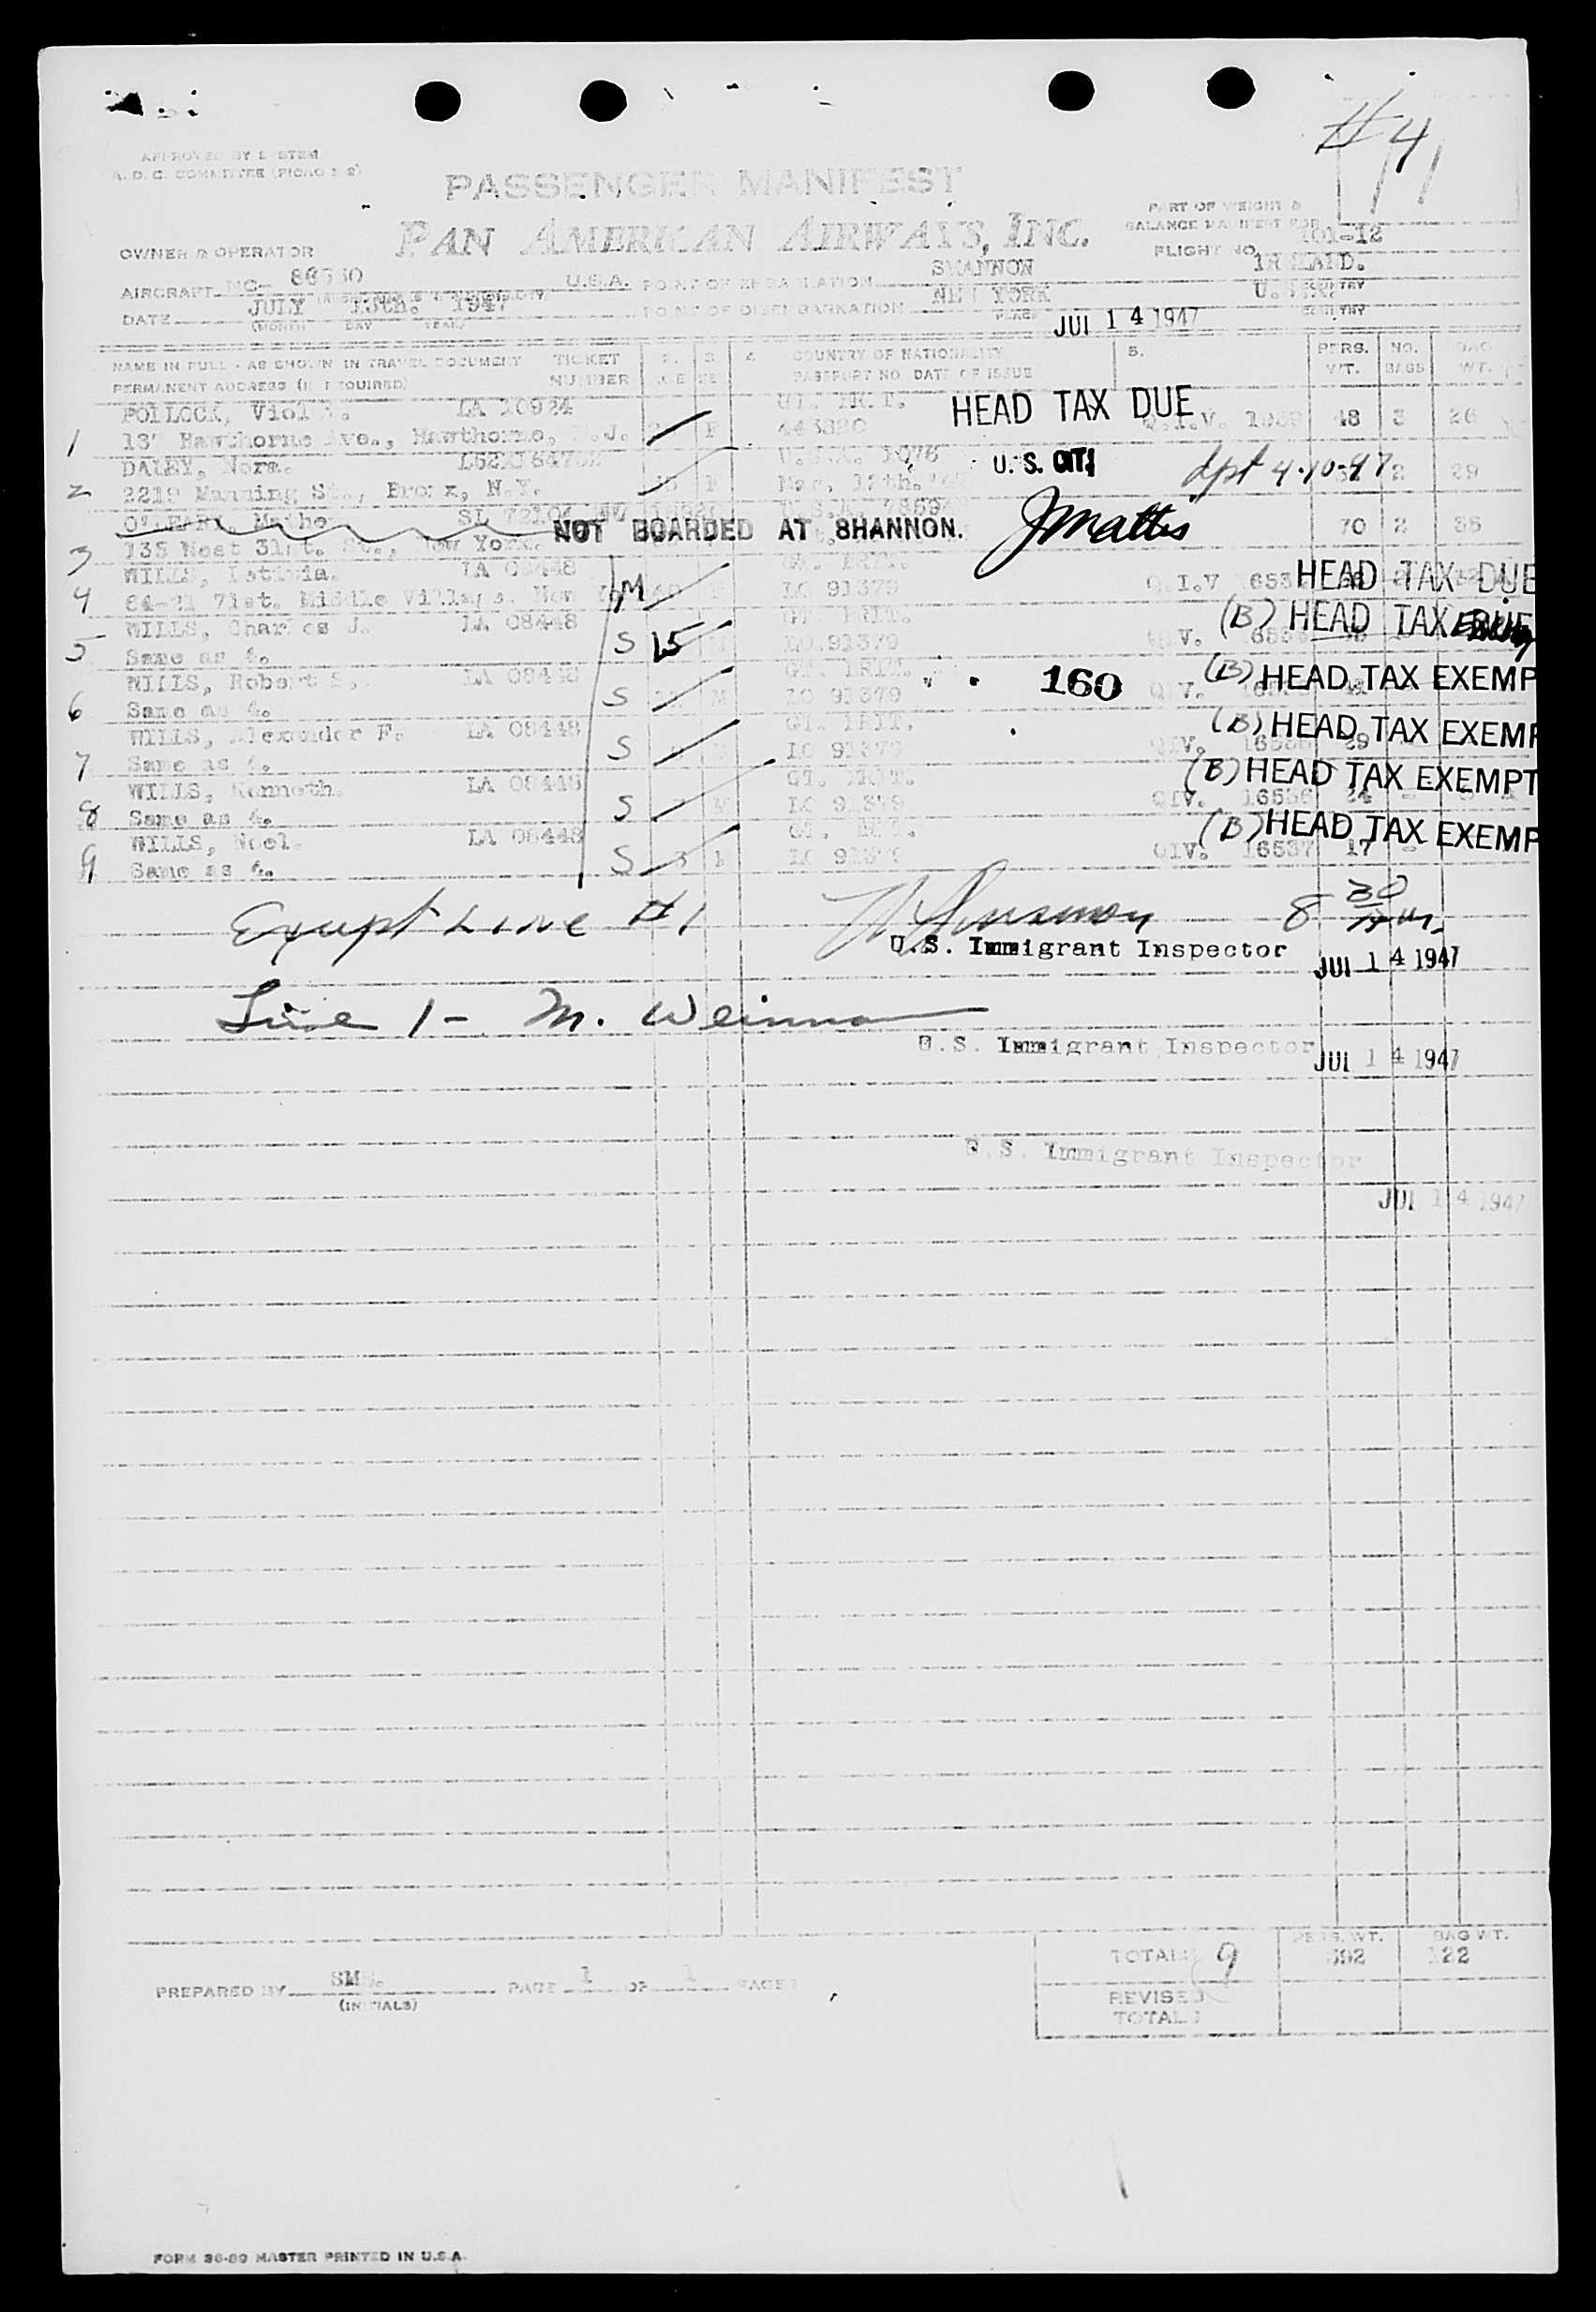 #4
APPROVED BY SYSTEM
A. D. C. COMMITTEE (PICAO 2-2)
PASSENGER MANIFEST
PAN AMERICAN AIRWAYS, INC.
PART OF WEIGHT &
BALANCE MANIFEST FOR
FLIGHT NO. 101-12
OWNER & OPERATOR
AIRCRAFT NC- U.S.A. POINT OF EMBARKATION SHANNON IRELAND.
DATE JULY 13th. 1947 POINT OF DISEMBARKATION NEW YORK U.S.A.
(MONTH DAY YEAR) PLACE COUNTRY
JUL 14 1947
NAME IN FULL - AS SHOWN IN TRAVEL DOCUMENT TICKET 2. 3. 4. COUNTRY OF NATIONALITY 5. PERS. NO. BAG
PERMANENT ADDRESS (IF REQUIRED) NUMBER AGE SEX PASSPORT NO. DATE OF ISSUE WT. BAGS WT.
POLLOCK, LA 10924 GT. BRIT. HEAD TAX DUE
1 137 Hawthorne Ave., Hawthorne, N.J. F 443820 Q.I.V. 48 3 26
DALEY, Nora. U.S.A. 1076 U. S. CIT.
2 2219 Manning St., Bronx, N.Y. F Mar. 12th. dpt 4-10-47 2 29
O'LEARY, NOT BOARDED AT SHANNON. JMattis
3 135 West 31st. St., New York. 70 2 35
WILLS, LA 08448 GT. BRIT. HEAD TAX DUE
4 64-21 71st. Middle Village, New M LO 91379 Q.I.V
WILLS, Charles J. LA 08448 GT. BRIT. (B) HEAD TAX
5 Same as 4. S 15 LO.91379
WILLS, Robert S. LA 08448 GT. BRIT. 160 (B) HEAD TAX EXEMP
6 Same as 4. S M LO 91379
WILLS, Alexander F. LA 08448 GT. BRIT. (B) HEAD TAX EXEMP
7 Same as 4. S LO 91379 QIV. 29
WILLS, Kenneth. LA 08448 GT. BRIT. (B) HEAD TAX EXEMPT
8 Same as 4. S 7 M LO 91379 QIV. 16536 24
WILLS, Noel. LA 08448 GT. BRIT. (B) HEAD TAX EXEMP
9 Same as 4. S LO 91379 QIV. 16537 17
Exempt Line #1 8 30 AM.
U.S. Immigrant Inspector JUL 14 1947
Line 1- M. Weinman
U.S. Immigrant Inspector JUL 14 1947
U.S. Immigrant Inspector
JUL 14 1947
TOTAL: 9 PERS. WT. 392 BAG WT. 122
REVISED
TOTAL:
PREPARED BY PAGE 1 OF 1 PAGES
(INITIALS)
FORM 36-89 MASTER PRINTED IN U.S.A.